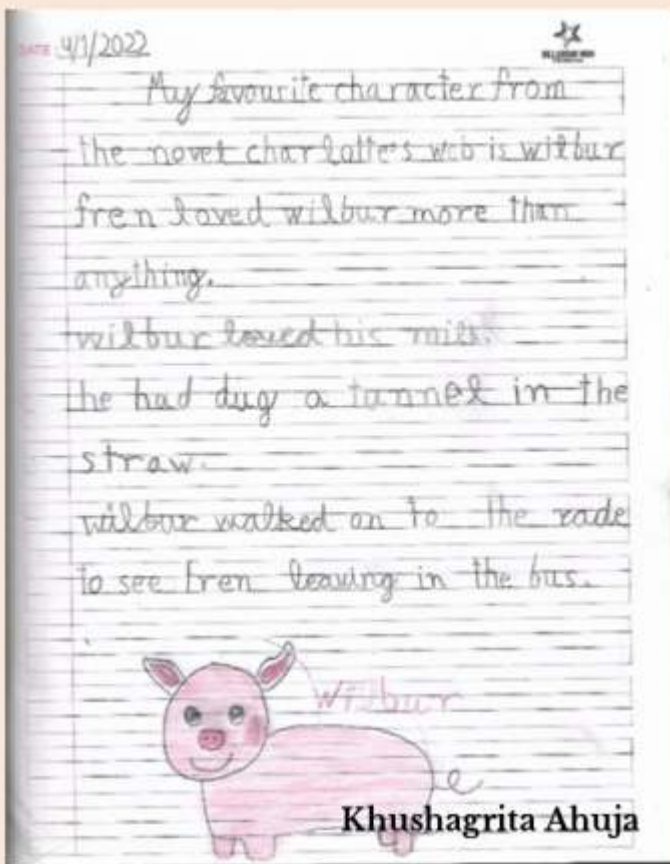 DATE 4/1/2022
My favourite character from
the novel charlotte's web is wilbur
fren loved wilbur more than
anything.
wilbur loved his milk.
he had dug a tunnel in the
straw.
wilbur walked on to the rade
to see fren leaving in the bus.
Wilbur
Khushagrita Ahuja